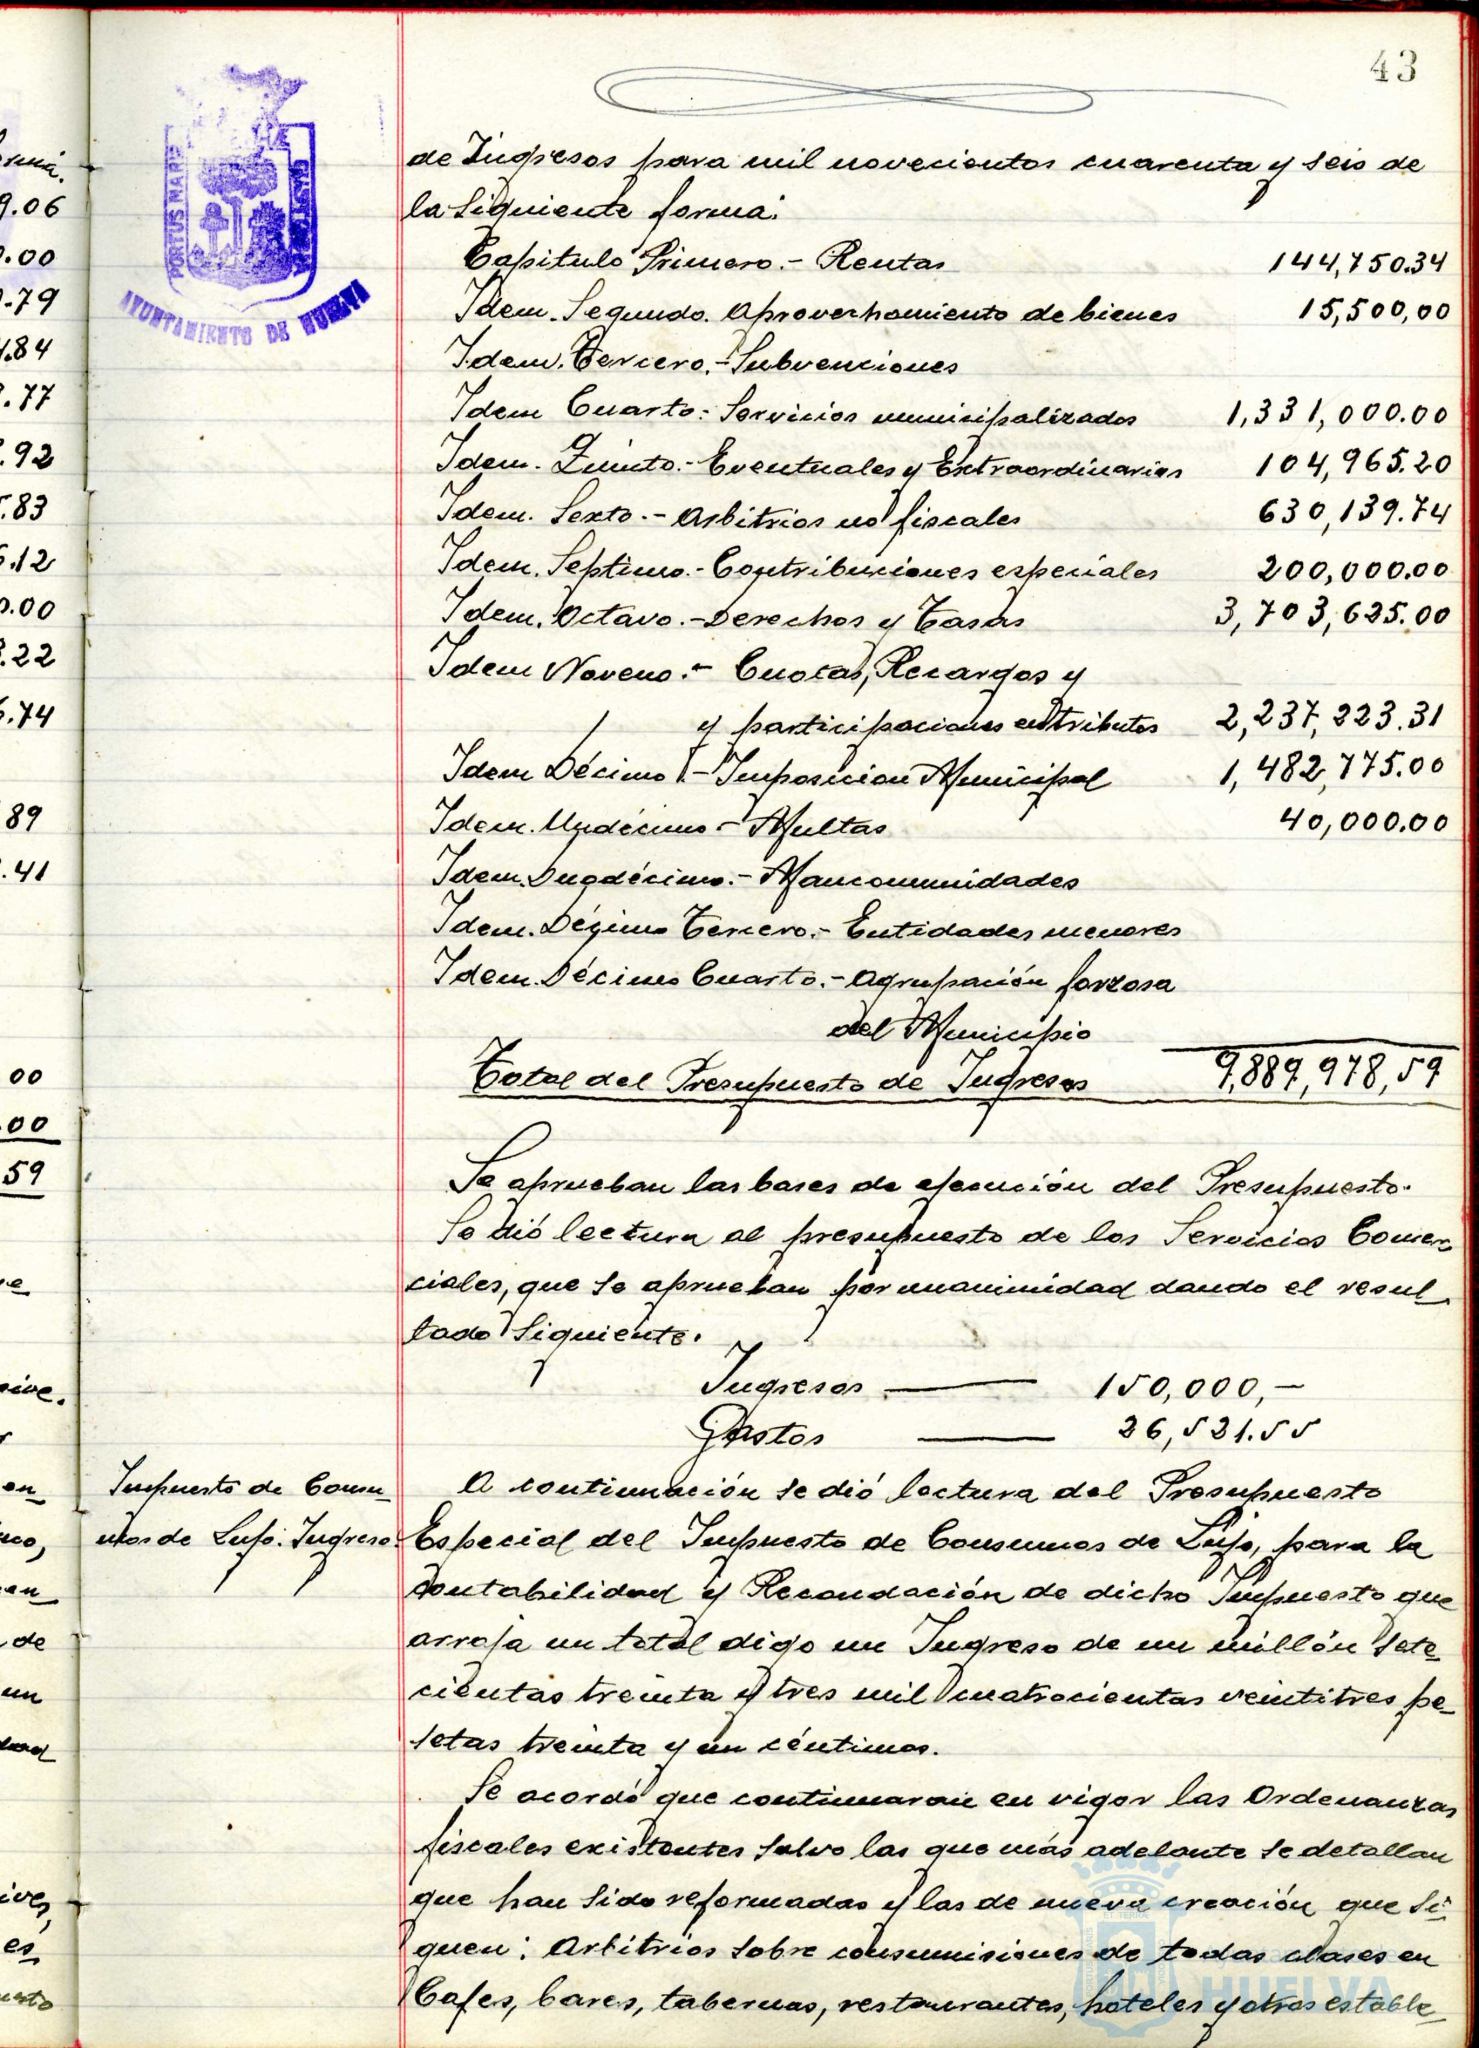 43
PORTUS MARIS
AYUNTAMIENTO DE HUELVA
de Ingresos para mil novecientos cuarenta y seis de
la siguiente forma:
Capitulo Primero.- Rentas 144,750.34
Idem. Segundo. Aprovechamiento de bienes 15,500,00
Idem. Tercero.- Subvenciones
Idem Cuarto.- Servicios municipalizados 1,331,000.00
Idem. Quinto.- Eventuales y Extraordinarios 104,965.20
Idem. Sexto.- Arbitrios no fiscales 630,139.74
Idem. Septimo.- Contribuciones especiales 200,000.00
Idem. Octavo.- Derechos y Tasas 3,703,625.00
Idem Noveno.- Cuotas, Recargos y
y participaciones en tributos 2,237,223.31
Idem Décimo.- Imposicion Municipal 1,482,775.00
Idem. Undécimo.- Multas 40,000.00
Idem. Duodécimo.- Mancomunidades
Idem. Décimo Tercero.- Entidades menores
Idem. Décimo Cuarto.- Agrupación forzosa
del Municipio
Total del Presupuesto de Ingresos 9,889,978,59
Se aprueban las bases de ejecución del Presupuesto.
Se dió lectura al presupuesto de los Servicios Comer-
ciales, que se aprueban por unanimidad dando el resul-
tado siguiente.
Ingresos —— 150,000,—
Gastos —— 26,521.55
Impuesto de Consu-
mos de Lujo. Ingreso.
A continuación se dió lectura del Presupuesto
Especial del Impuesto de Consumos de Lujo, para la
contabilidad y Recaudación de dicho Impuesto que
arroja un total digo un Ingreso de un millón sete-
cientas treinta y tres mil cuatrocientas veintitres pe-
setas treinta y un céntimos.
Se acordó que continuaran en vigor las Ordenanzas
fiscales existentes salvo las que más adelante se detallan
que han sido reformadas y las de nueva creación que si-
guen: Arbitrios sobre consumisiones de todas clases en
Cafes, bares, tabernas, restaurantes, hoteles y otros estable-
HUELVA
9.06
.00
.79
.84
.77
.92
.83
.12
.00
.22
.74
89
.41
00
.00
59